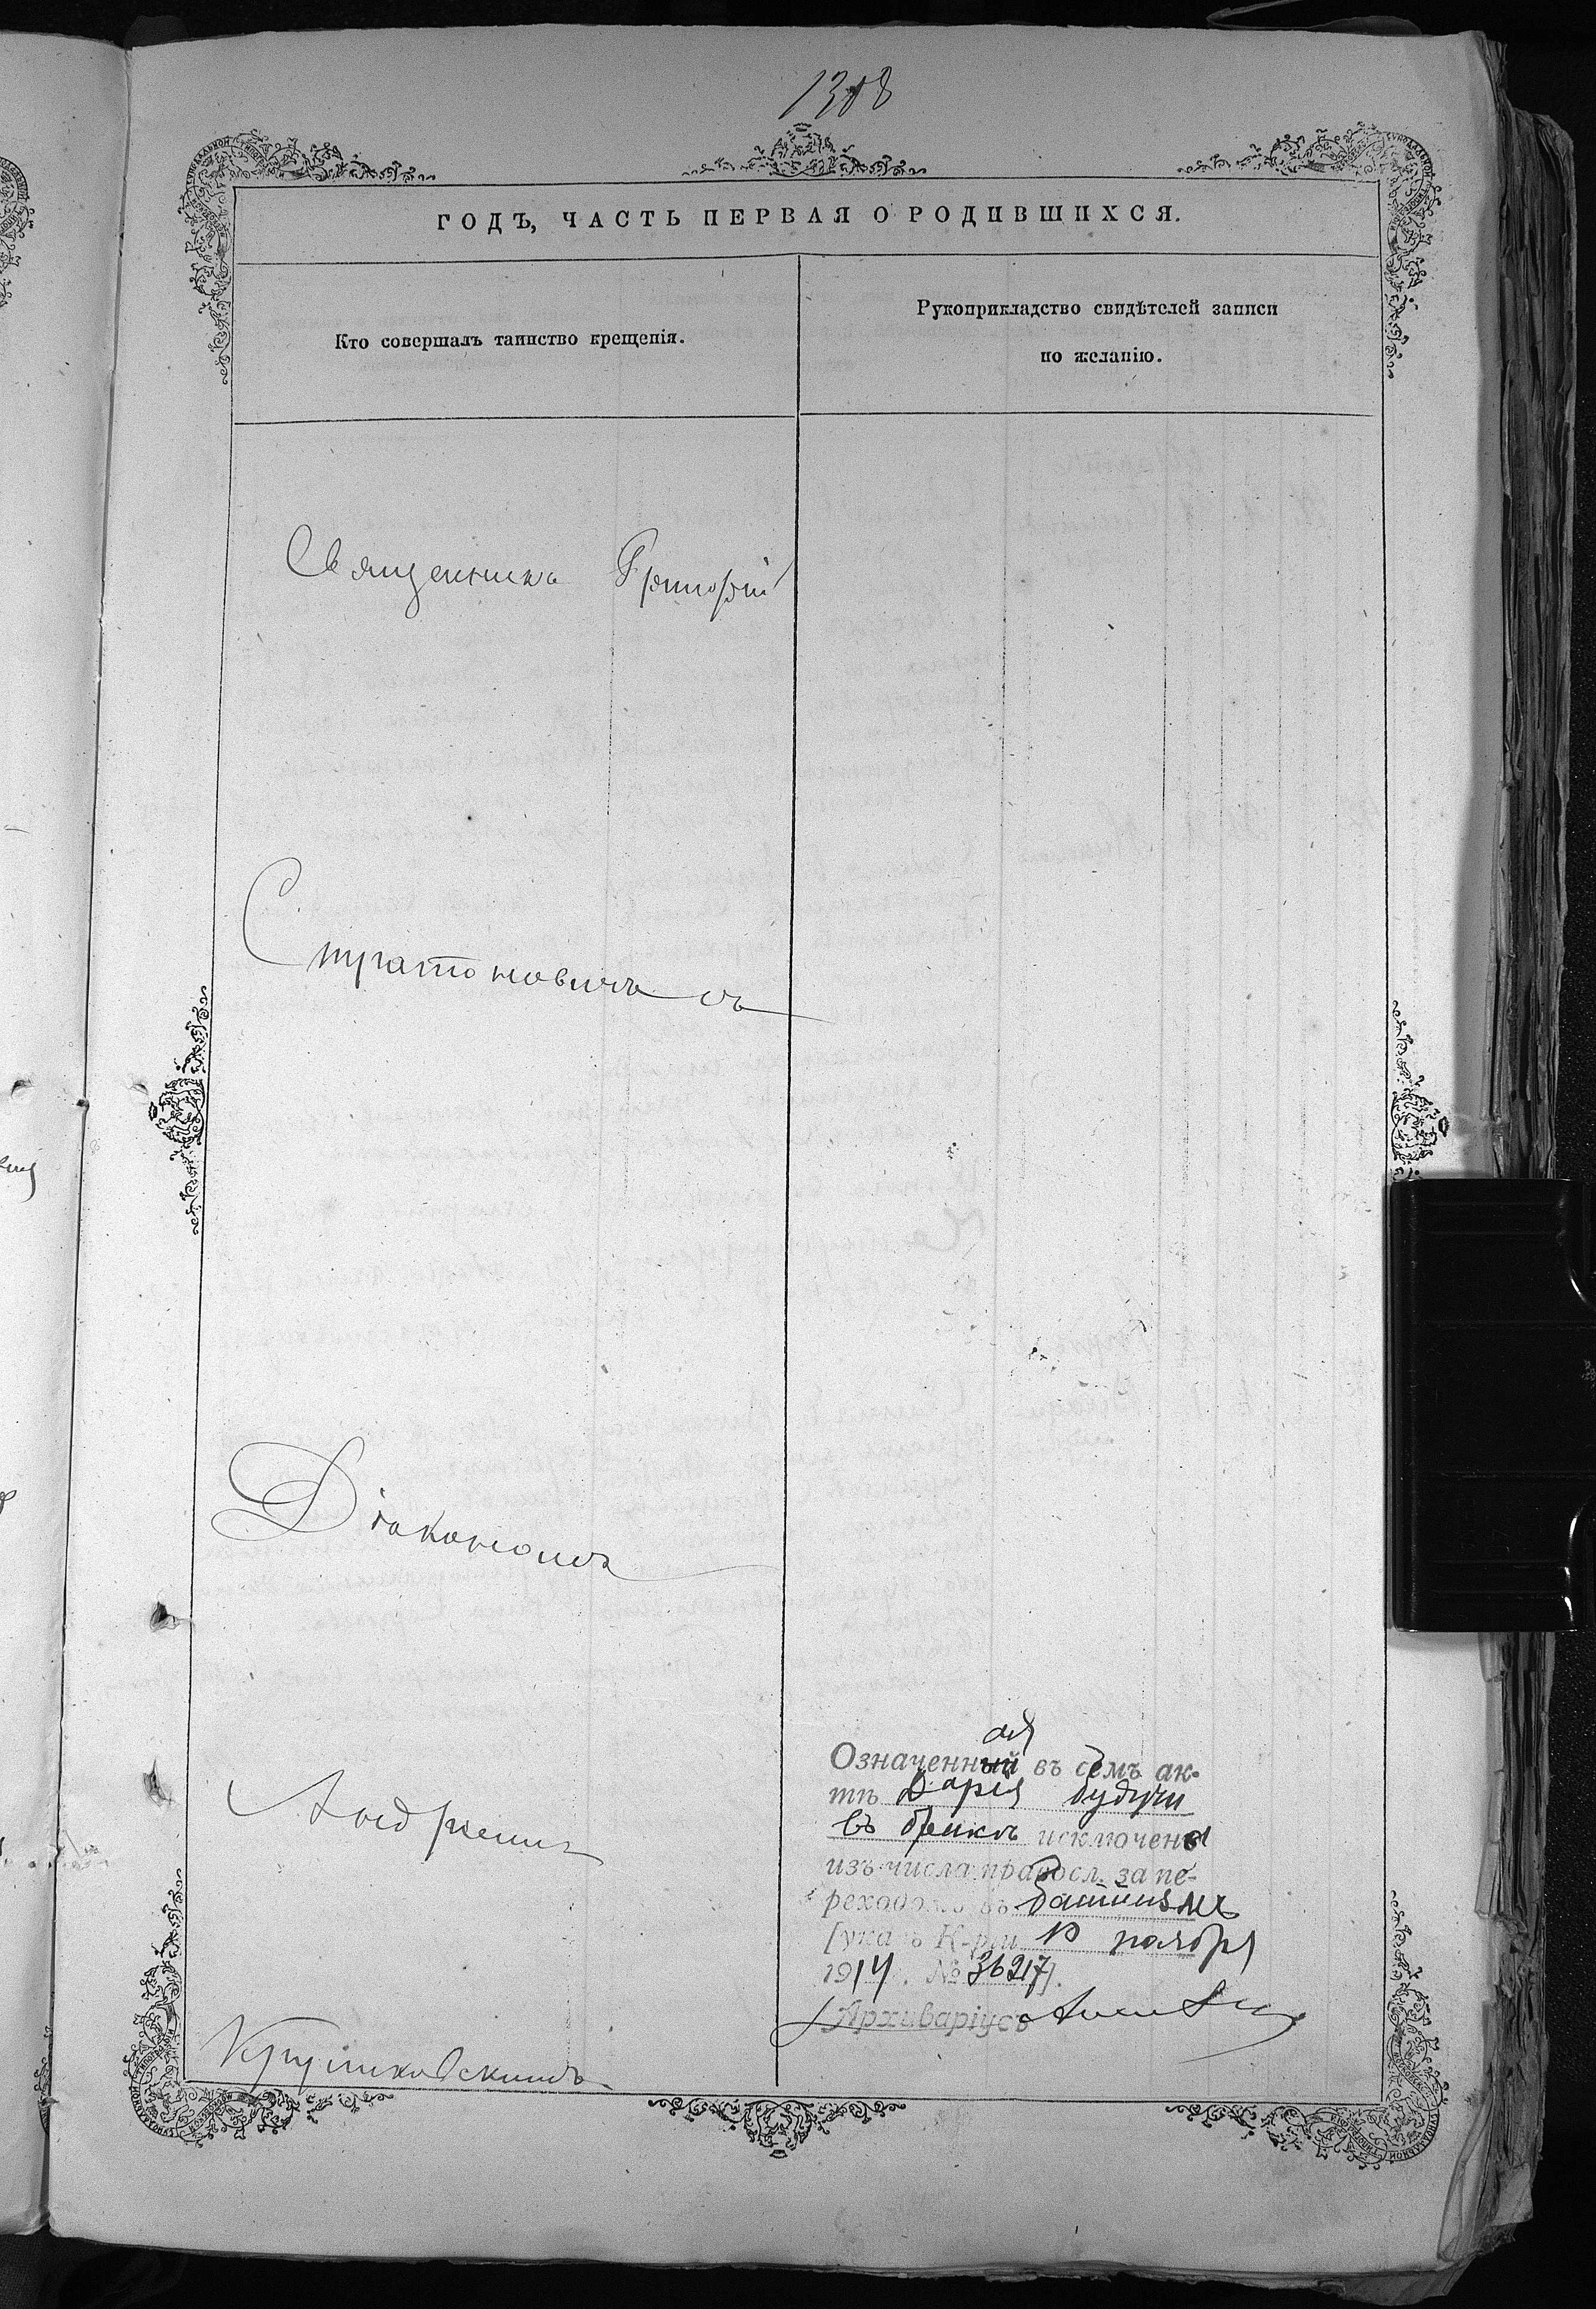 1308
ГОДЪ, ЧАСТЬ ПЕРВАЯ О РОДИВШИХСЯ.
Кто совершалъ таинство крещенія.
Рукоприкладство свидѣтелей записи
по желанію.
Священникъ Григорій
Стратоновичъ съ
Діакономъ
Андреемъ
Крушковскимъ
ая
Означенный въ семъ ак-
тѣ Дарія будучи
въ бракѣ исключена
изъ числа правосл. за пе-
реходомъ въ баптизмъ
[указъ К-ріи 10 ноября
1914 № 36217].
Архиваріусъ